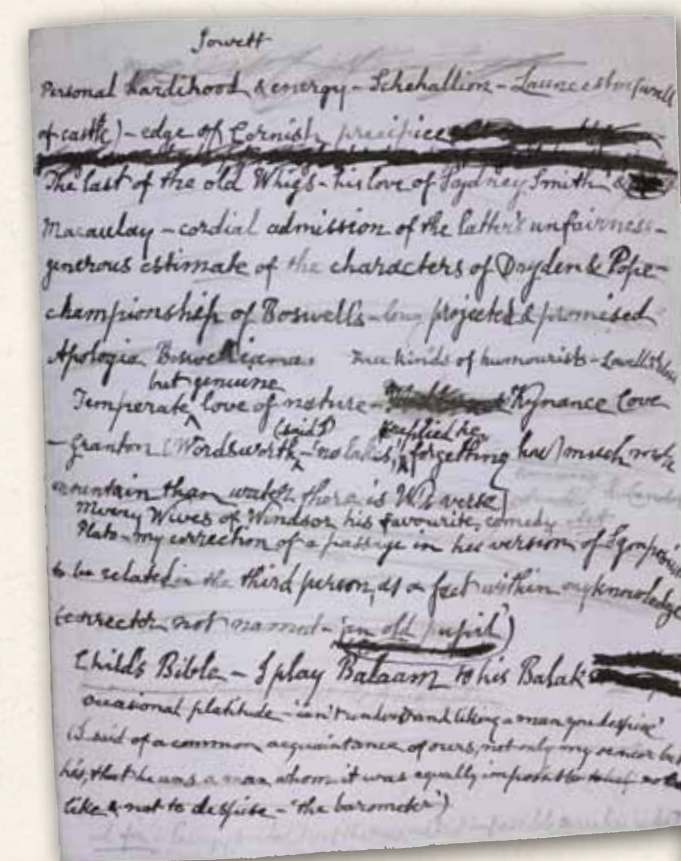 Jowett
Personal hardihood & energy – Schehallion – Launceston (wall
of castle) – edge of Cornish precipice
The last of the old Whigs – his love of Sydney Smith &
Macaulay – cordial admission of the latter's unfairness –
generous estimate of the characters of Dryden & Pope –
championship of Boswell – long projected & promised
Apologia Boswelliana kinds of humourists – Lowell's
but genuine
Temperate ^ love of nature – Kynance Cove
(said I) replied he,
– Granton (Wordsworth – 'no lakes', forgetting how much more
mountain than water there is in W's verse)
Merry Wives of Windsor his favourite comedy
Plato – my correction of a passage in his version of Symposium
to be related in the third person, as a fact within my knowledge
(corrector not named – 'an old pupil')
Child's Bible – I play Balaam to his Balak
Occasional platitude – 'can't understand liking a man you despise'
(I said of a common acquaintance of ours, not only my senior but
his, that he was a man whom it was equally impossible to not to
like & not to despise – 'the barometer')